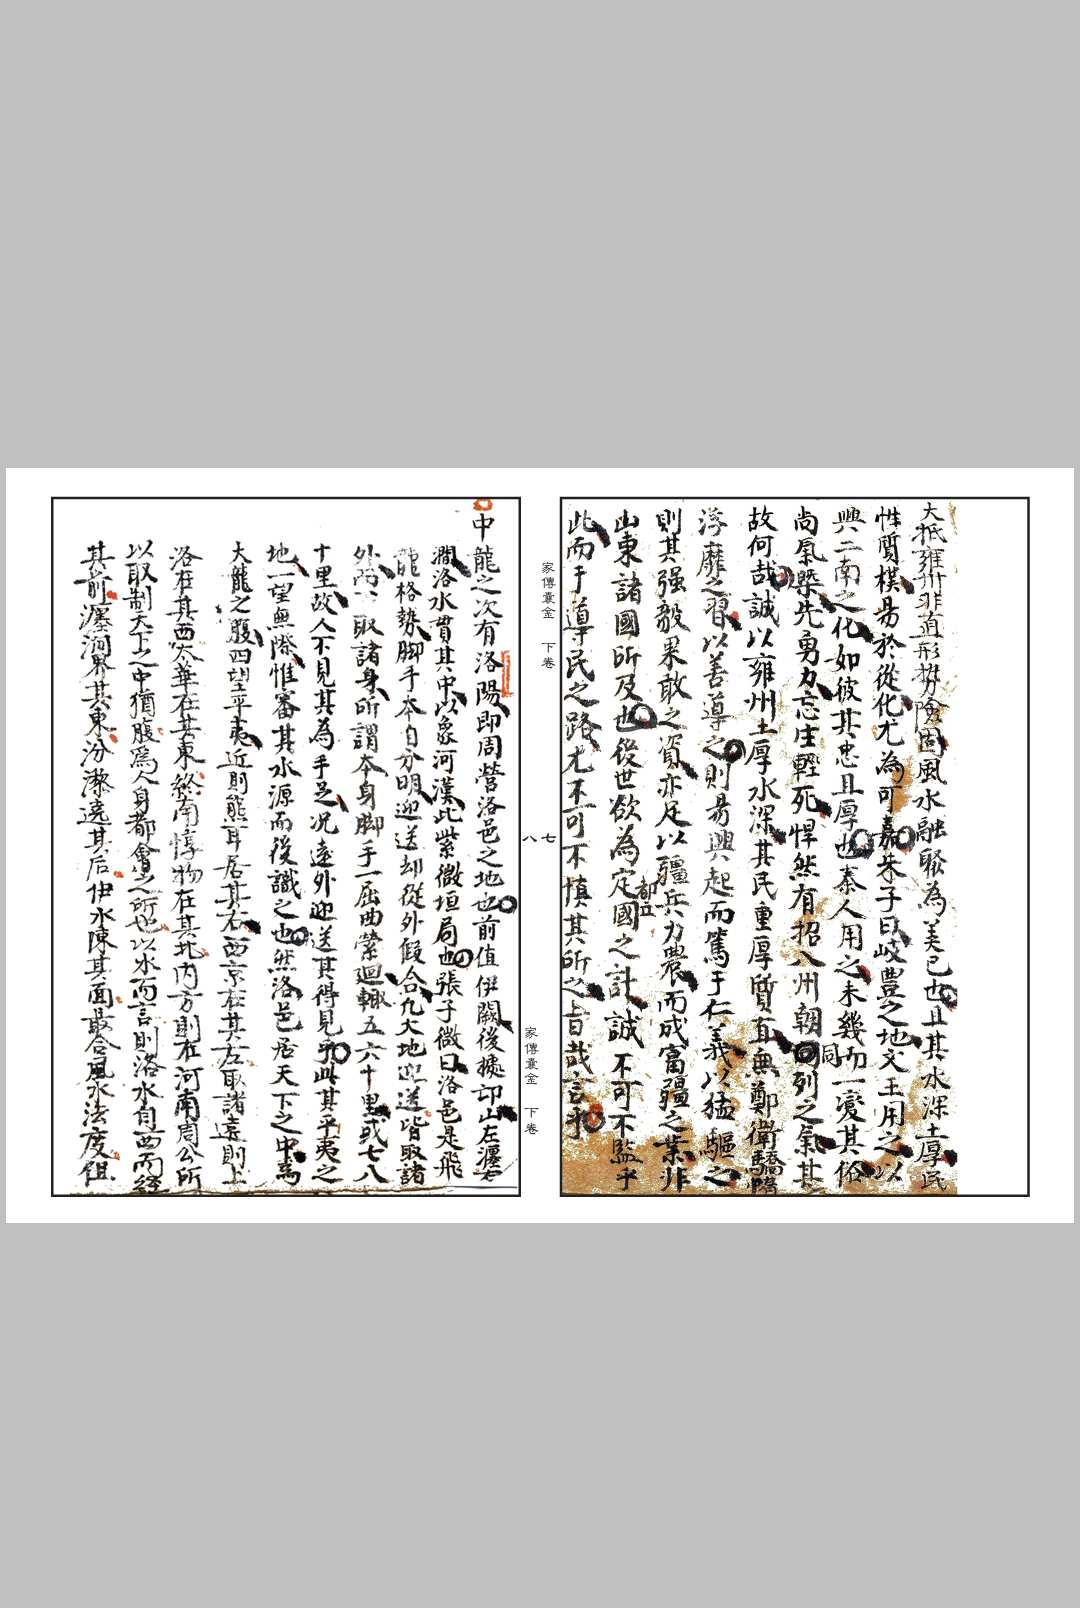 大抵雍州非直形勢險固風水融聚為美已也且其水深土厚民
性質樸易於從化尤為可嘉朱子曰岐豊之地文王用之以
興二南之化如彼其忠且厚也秦人用之未幾而一變其俗
尚氣槩先勇力忘生輕死悍然有招八州朝同列之氣其
故何哉誠以雍州土厚水深其民重厚質直無鄭衛驕惰
浮靡之習以善導之則易興起而篤于仁義以猛驅之
則其强毅果敢之資亦足以疆兵力農而成富疆之業非
山東諸國所及也後世欲為定國都立之計誠不可不監乎
此而于導民之路尤不可不慎其所之旨哉言乎
家傳囊金 下卷
八七
家傳囊金 下卷
中龍之次有洛陽即周營洛邑之地也前值伊闕後據邙山左瀍右
澗洛水貫其中以象河漢此紫微垣局也張子微曰洛邑是飛
龍格勢脚手本自分明迎送却從外假合九大地迎送皆取諸
外而 取諸身所謂本身脚手一屈曲縈廻輙五六十里或七八
十里故人不見其為手足况遠外迎送其得見乎此其平夷之
地一望無際惟審其水源而後識之也然洛邑居天下之中為
大龍之腹四望平夷近則熊耳居其右西京在其左取諸遠則上
洛在其西大華在其東終南惇物在其北内方則在河南周公所
以取制天下之中猶腹為人身都會之所也以水而言則洛水自西而經
其前瀍河界其東汾 遶其后伊水陳其面最合風水法度但